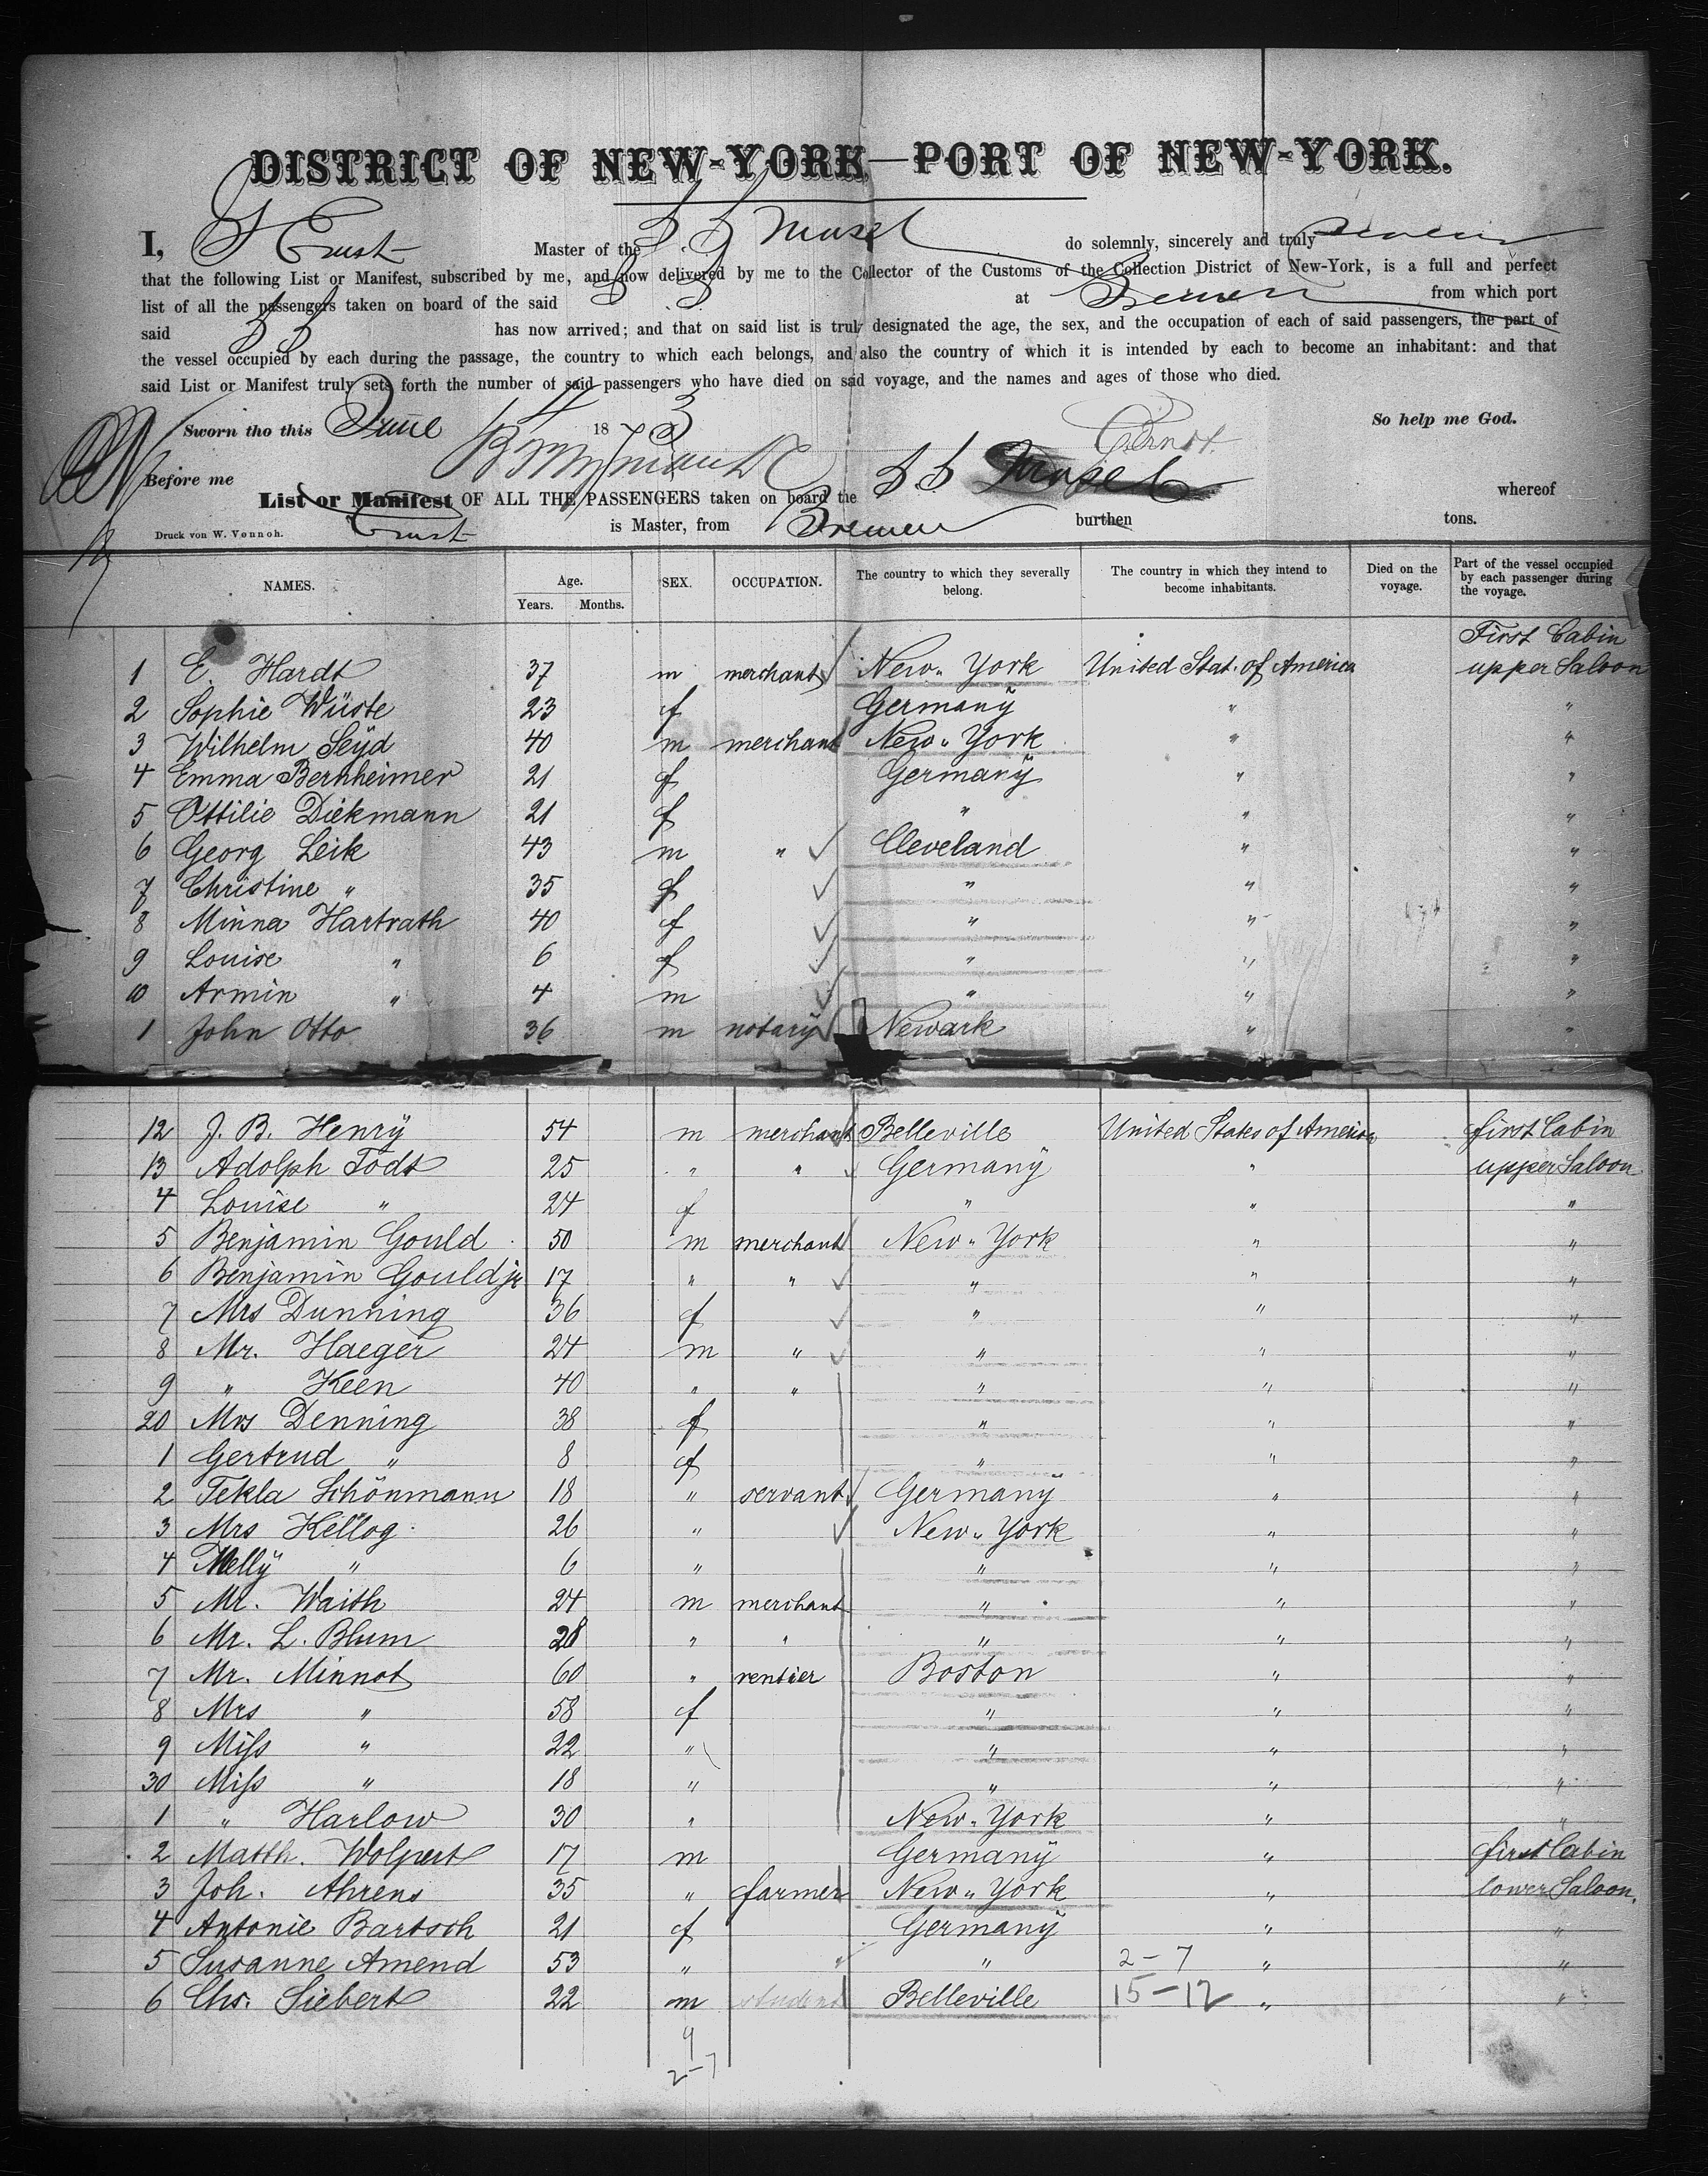 DISTRICT OF NEW-YORK—PORT OF NEW-YORK.
I, Ernst Master of the S S Mosel do solemnly, sincerely and truly
that the following List or Manifest, subscribed by me, and now delivered by me to the Collector of the Customs of the Collection District of New-York, is a full and perfect
list of all the passengers taken on board of the said S S at Bremen from which port
said S S has now arrived; and that on said list is truly designated the age, the sex, and the occupation of each of said passengers, the part of
the vessel occupied by each during the passage, the country to which each belongs, and also the country of which it is intended by each to become an inhabitant: and that
said List or Manifest truly sets forth the number of said passengers who have died on said voyage, and the names and ages of those who died.
Sworn tho this June 14 1873 So help me God.
Ernst.
Before me
List or Manifest OF ALL THE PASSENGERS taken on board the S S Mosel whereof
Ernst is Master, from Bremen burthen tons.
Druck von W. Vennoh.
NAMES. Age. Years. Months. SEX. OCCUPATION. The country to which they severally belong. The country in which they intend to become inhabitants. Died on the voyage. Part of the vessel occupied by each passenger during the voyage.
First Cabin
1 E. Hardt 37 m merchant New-York United Stat. of America upper Saloon
2 Sophie Wüste 23 f Germany " "
3 Wilhelm Seyd 40 m merchant New-York " "
4 Emma Bernheimer 21 f Germany " "
5 Ottilie Diekmann 21 f " " "
6 Georg Leik 43 m " Cleveland " "
7 Christine " 35 f " " "
8 Minna Hartrath 40 f " " "
9 Louise " 6 f " " "
10 Armin " 4 m " " "
1 John Otto 36 m notary Newark " "
12 J. B. Henry 54 m merchant Belleville United States of America first Cabin
13 Adolph Todt 25 " " Germany " upper Saloon
4 Louise " 24 f " " "
5 Benjamin Gould 50 m merchant New-York " "
6 Benjamin Gould jr 17 " " " " "
7 Mrs Dunning 36 f " " "
8 Mr. Haeger 24 m " " " "
9 " Keen 40 " " " " "
20 Mrs Denning 38 f " " "
1 Gertrud " 8 f " " "
2 Tekla Schönmann 18 " servant Germany " "
3 Mrs Kellog 26 " New-York " "
4 Melly " 6 " " " "
5 Mr. Waith 24 m merchant " " "
6 Mr. L. Blum 28 " " " " "
7 Mr. Minnot 60 " rentier Boston " "
8 Mrs " 58 f " " "
9 Miss " 22 " " " "
30 Miss " 18 " " " "
1 " Harlow 30 " New-York " "
2 Matth. Wolpert 17 m Germany " first Cabin
3 Joh. Ahrens 35 " farmer New-York " lower Saloon.
4 Antonie Bartsch 21 f Germany " "
5 Susanne Amend 53 " " 2-7 " "
6 Chs. Siebert 22 m student Belleville 15-12 " "
9
2-7